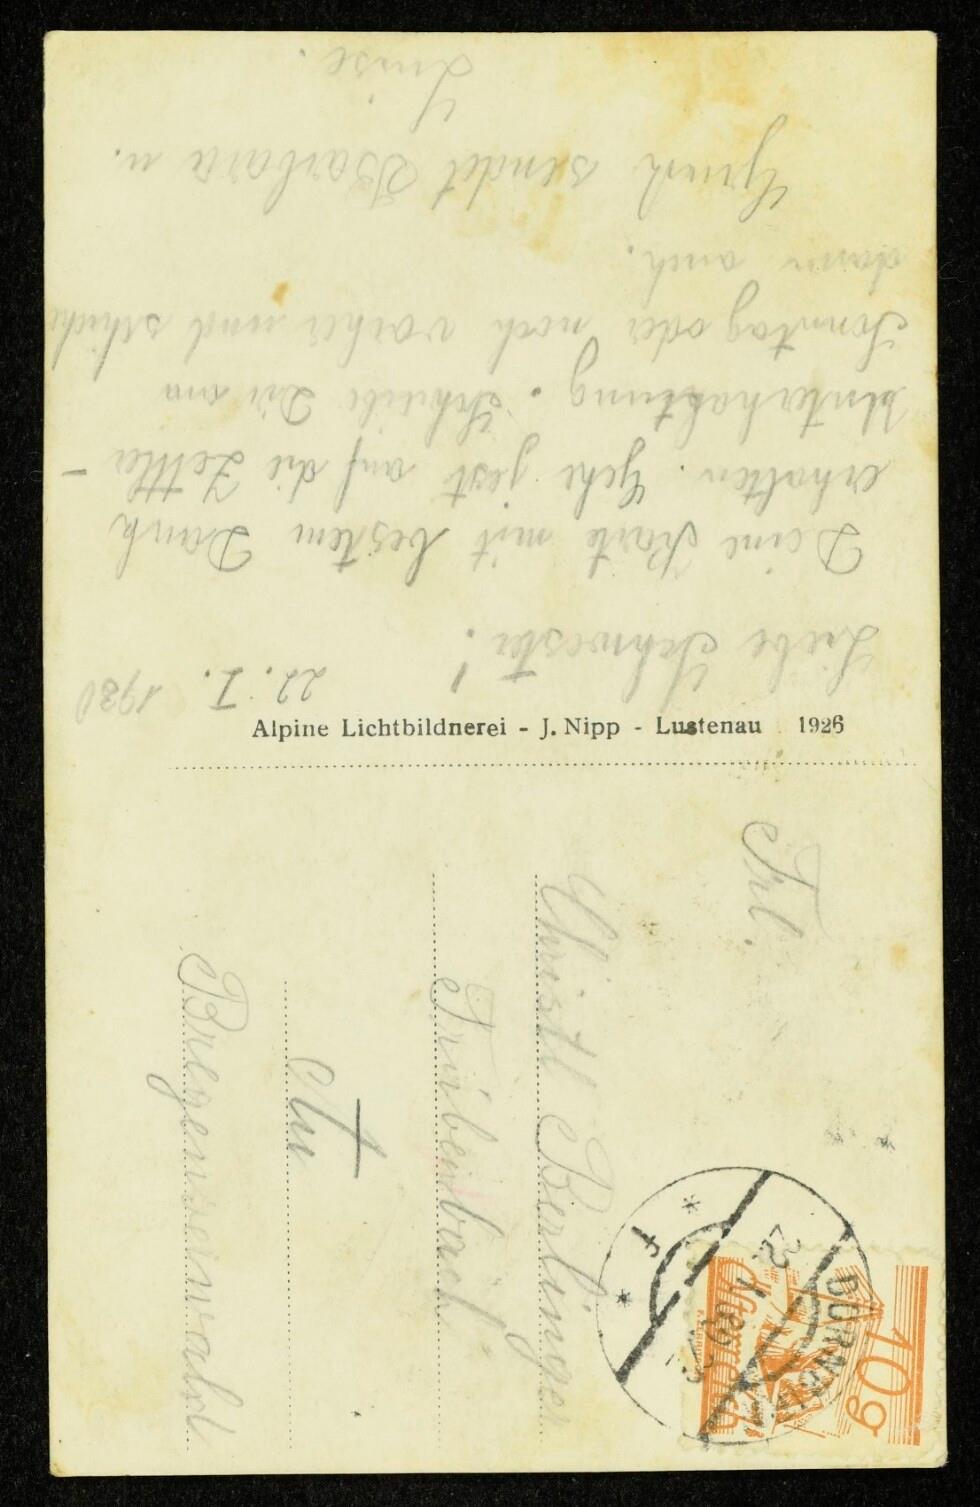 22. I. 1930
Liebe Schwester!
Deine Karte mit bestem Dank
erhalten. Gehe jezt auf die Zettler-
Unterhaltung. Schreibe Dir am
Sonntag oder noch vorher und schicke
dann auch.
Gruß sendet Barbara u.
Luise.
Alpine Lichtbildnerei - J. Nipp - Lustenau 1926
Frl.
Christl Berlinger
Au
Bregenzerwald
10g
Österreich